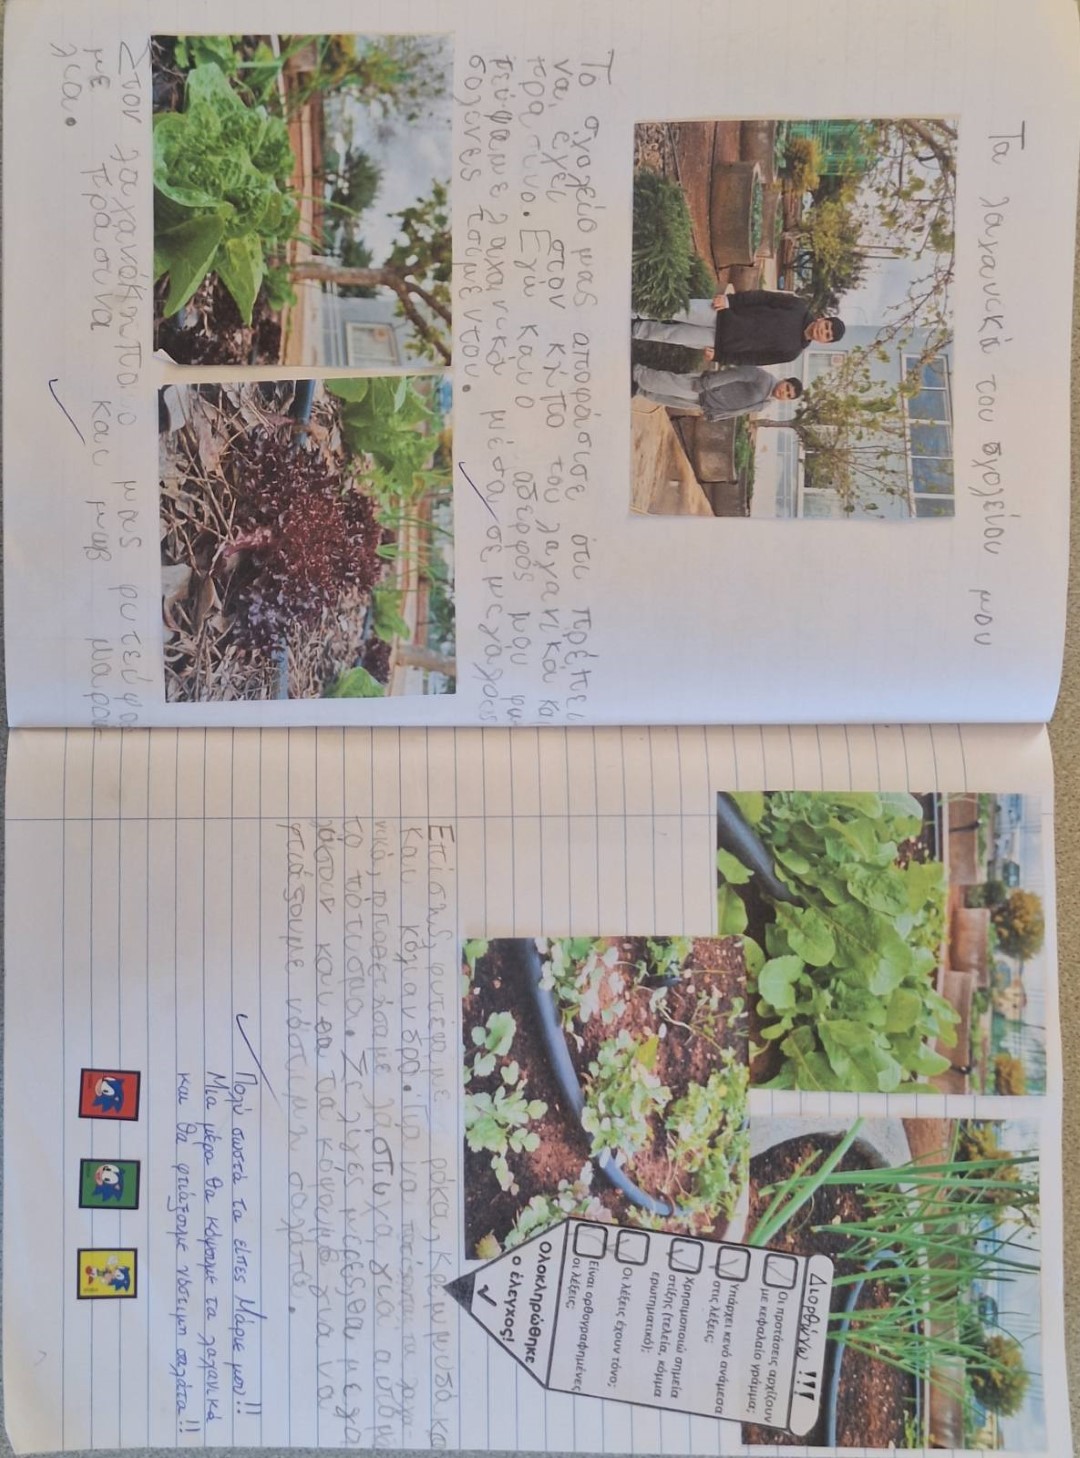 Τα λαχανικά του σχολείου μου
Το σχολείο μας αποφάσισε ότι πρέπει
να έχει στον κήπο του λαχανικά και
πράσινο. Εγώ και ο αδερφός μου φυ-
τέψαμε λαχανικά μέσα σε μεγάλες
σολίνες τσιμέντου.
Στον λαχανόκηπο μας φυτέψα
με πράσινα και μαβ μαρού-
λια.
Επίσης, φυτέψαμε ρόκα, κρεμμυδά κα
και κόλιανδρο. Για να ποτίζονται τα λαχα-
νικά, τοποθετήσαμε λάστιχα για αυτόμα
το πότισμα. Σε λίγες μέρες θα μεγα
λώσουν και θα τα κόψουμε για να
φτιάξουμε νόστιμη σαλάτα.
Πολύ σωστά τα είπες Μάριε μου!!
Μια μέρα θα κόψουμε τα λαχανικά
και θα φτιάξουμε νόστιμη σαλάτα!!
Διορθώνω !!!
Οι προτάσεις αρχίζουν
με κεφαλαίο γράμμα;
Υπάρχει κενό ανάμεσα
στις λέξεις;
Χρησιμοποιώ σημεία
στίξης (τελεία, κόμμα
ερωτηματικό);
Οι λέξεις έχουν τόνο;
Είναι ορθογραφημένες
οι λέξεις;
Ολοκληρώθηκε
ο έλεγχος!